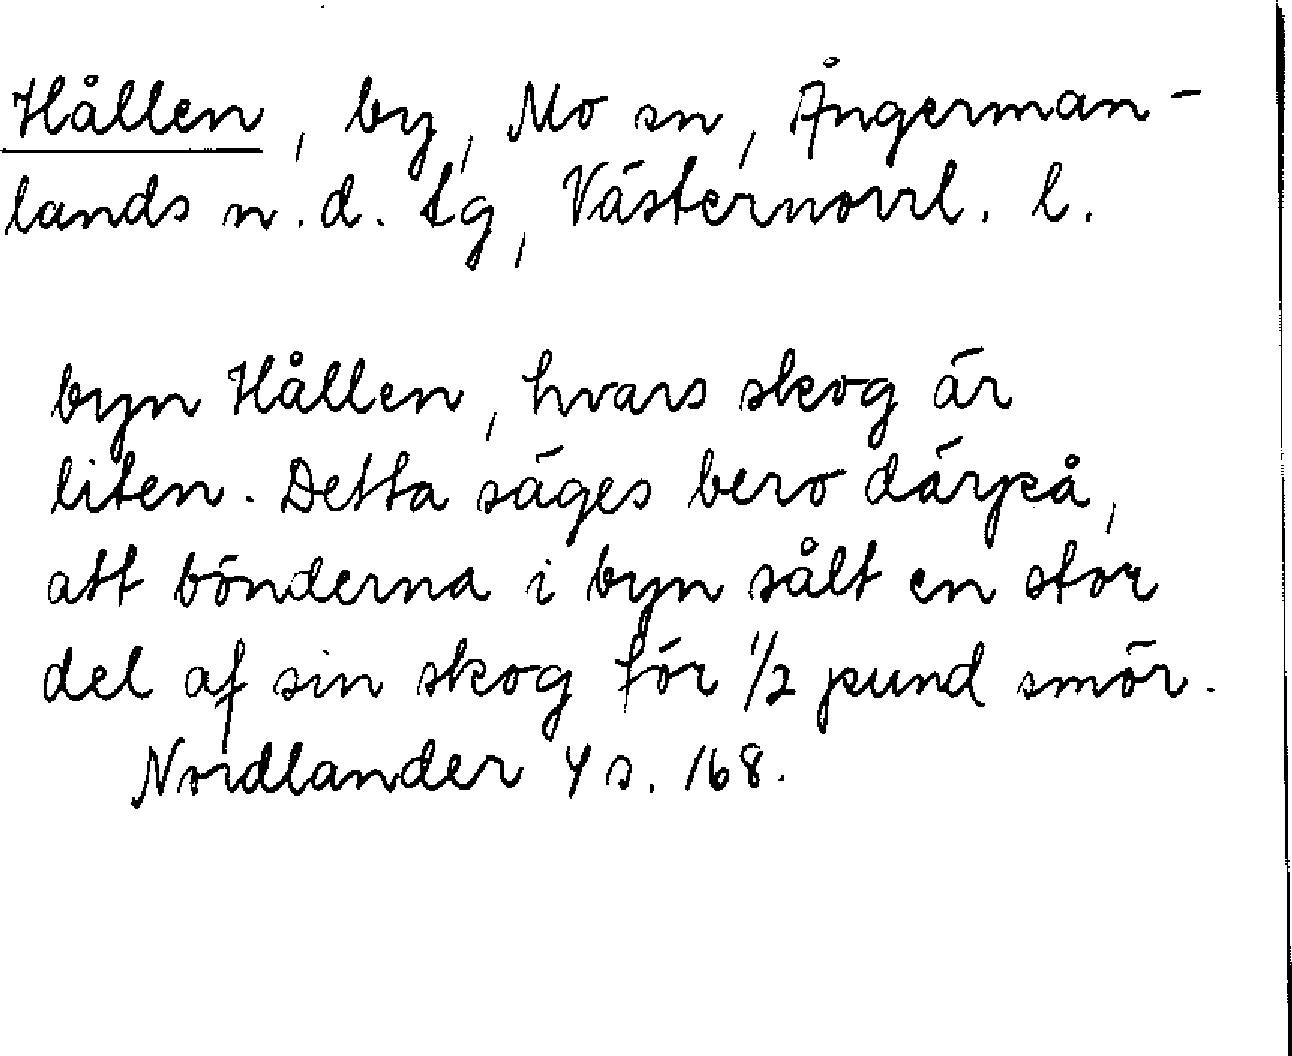 Hållen, by, Mo sn, Ångerman-
lands n.d. tg, Västernorrl. l.
byn Hållen, hvars skog är
liten. Detta säges bero därpå,
att bönderna i byn sålt en stor
del af sin skog för 1/2 pund smör.
Nordlander 4 s. 168.